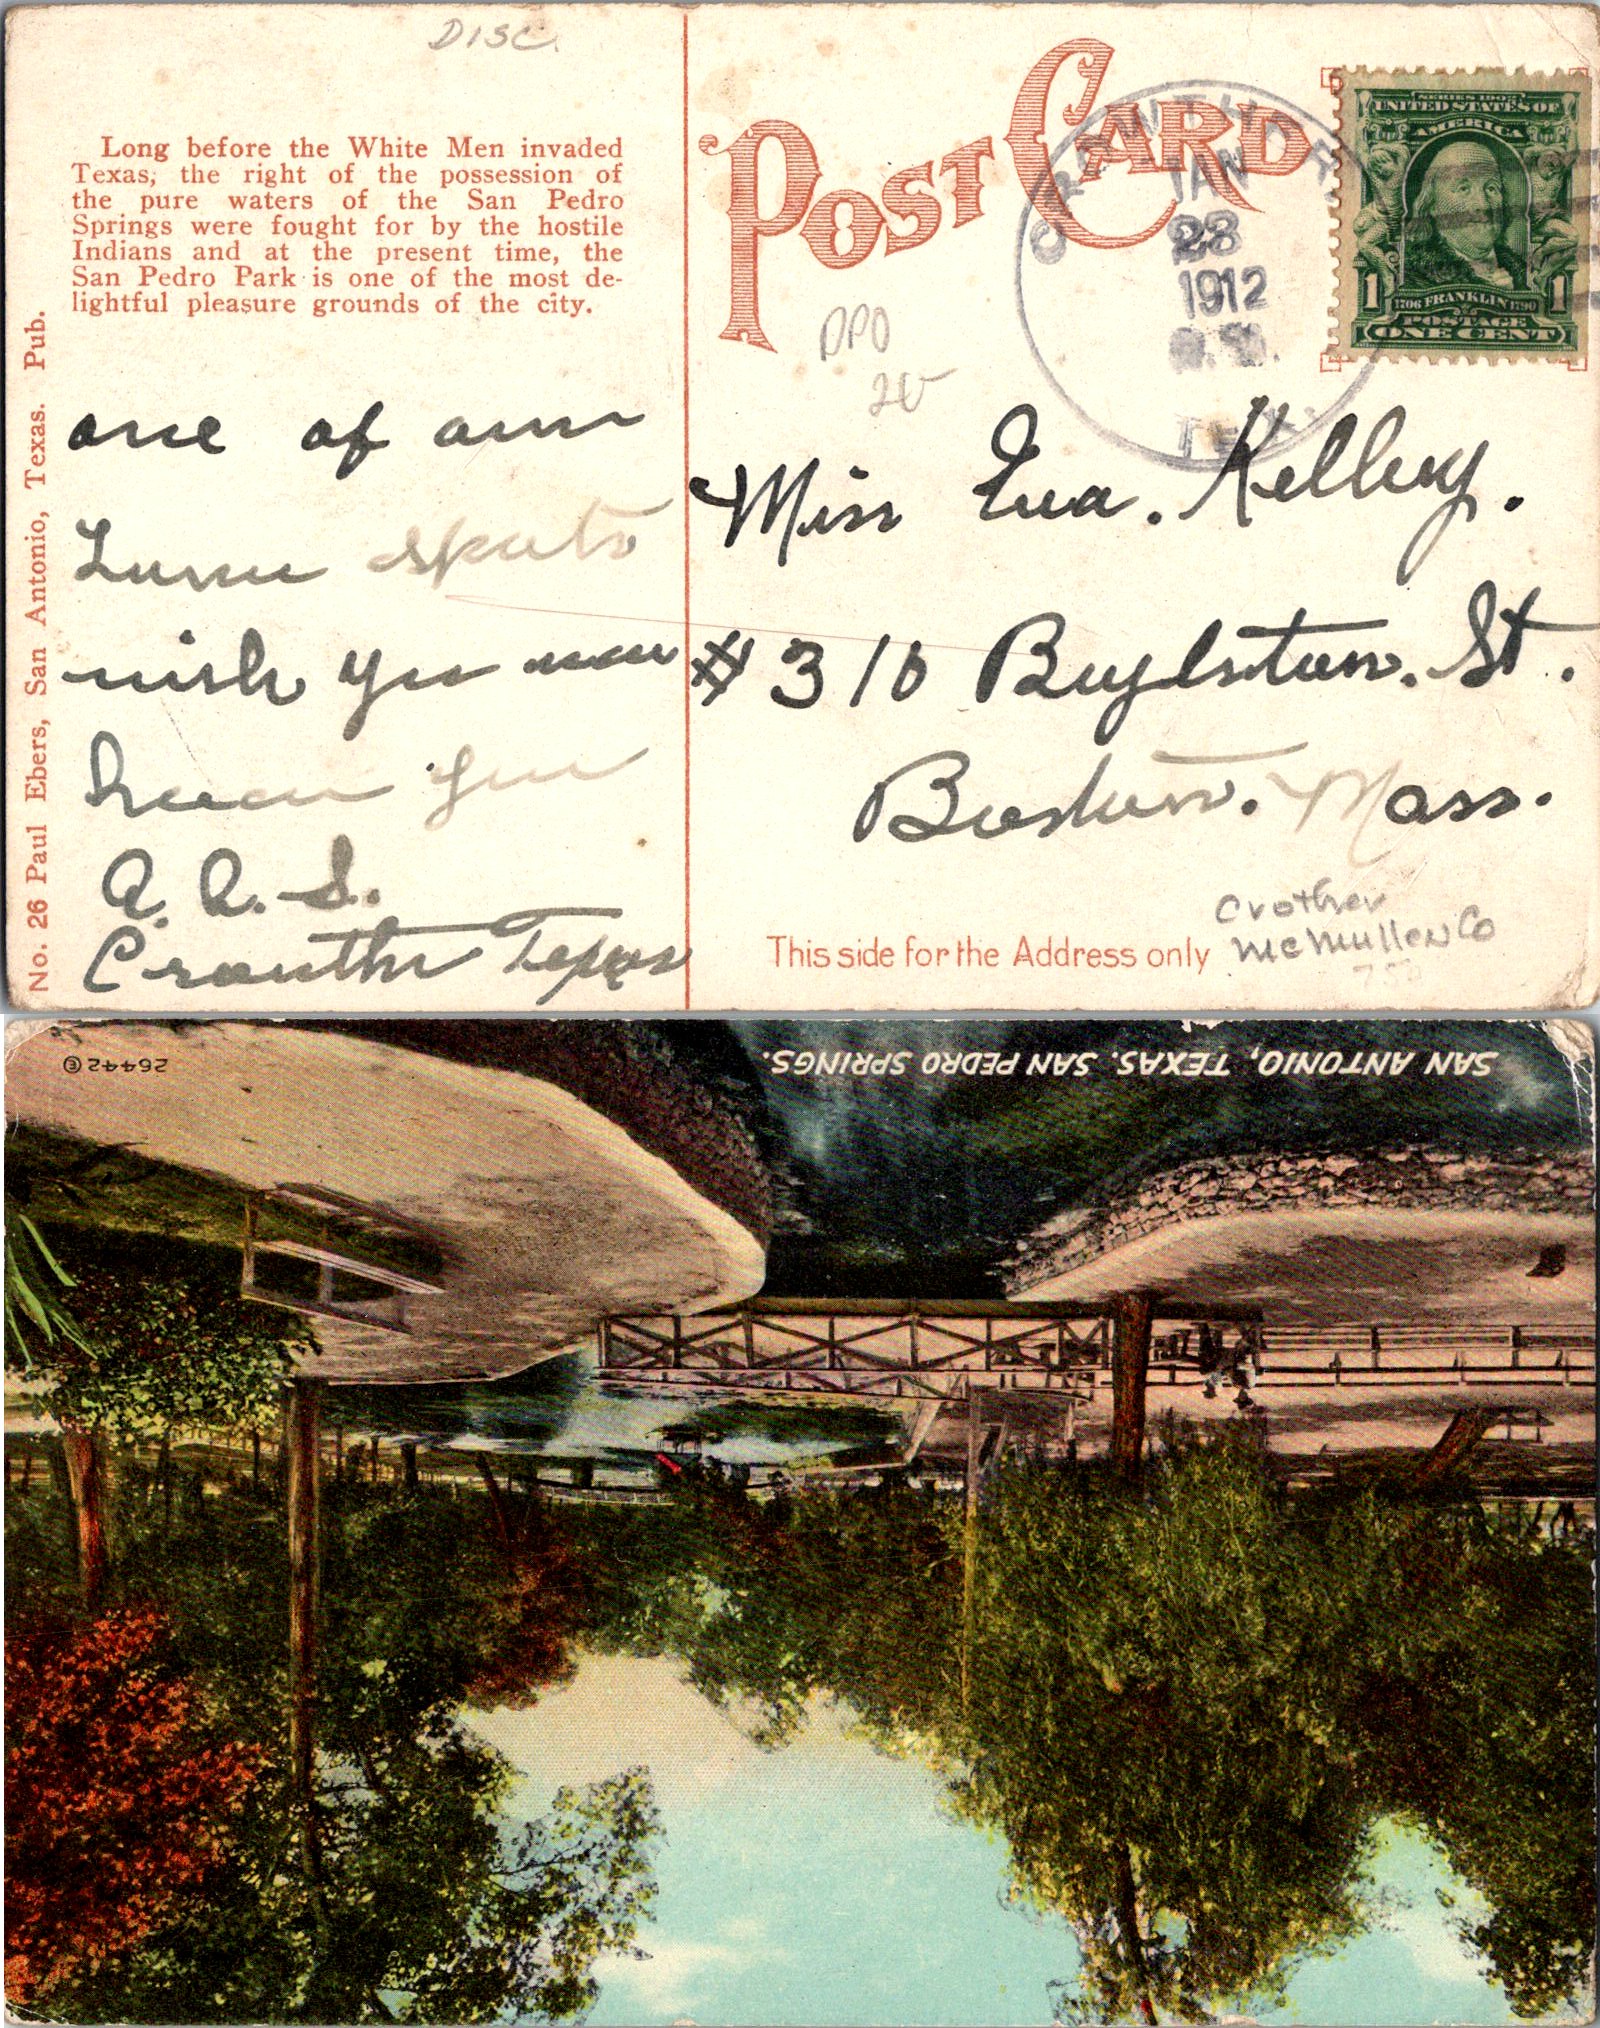 DISC.
Long before the White Men invaded
Texas, the right of the possession of
the pure waters of the San Pedro
Springs were fought for by the hostile
Indians and at the present time, the
San Pedro Park is one of the most de-
lightful pleasure grounds of the city.
No. 26 Paul Ebers, San Antonio, Texas. Pub.
one of our
spots
wish you
A. A. S.
Crowther Texas
POST CARD
CROWTHER
JAN
23
1912
TEX.
SERIES 1902
UNITED STATES OF
AMERICA
1706 FRANKLIN 1790
1 1
POSTAGE
ONE CENT
DPO
20
Miss Eva. Kelley.
# 310 Boylston. St.
Boston. Mass.
This side for the Address only
Crother
McMullen Co
750
SAN ANTONIO, TEXAS. SAN PEDRO SPRINGS.
26442 ©